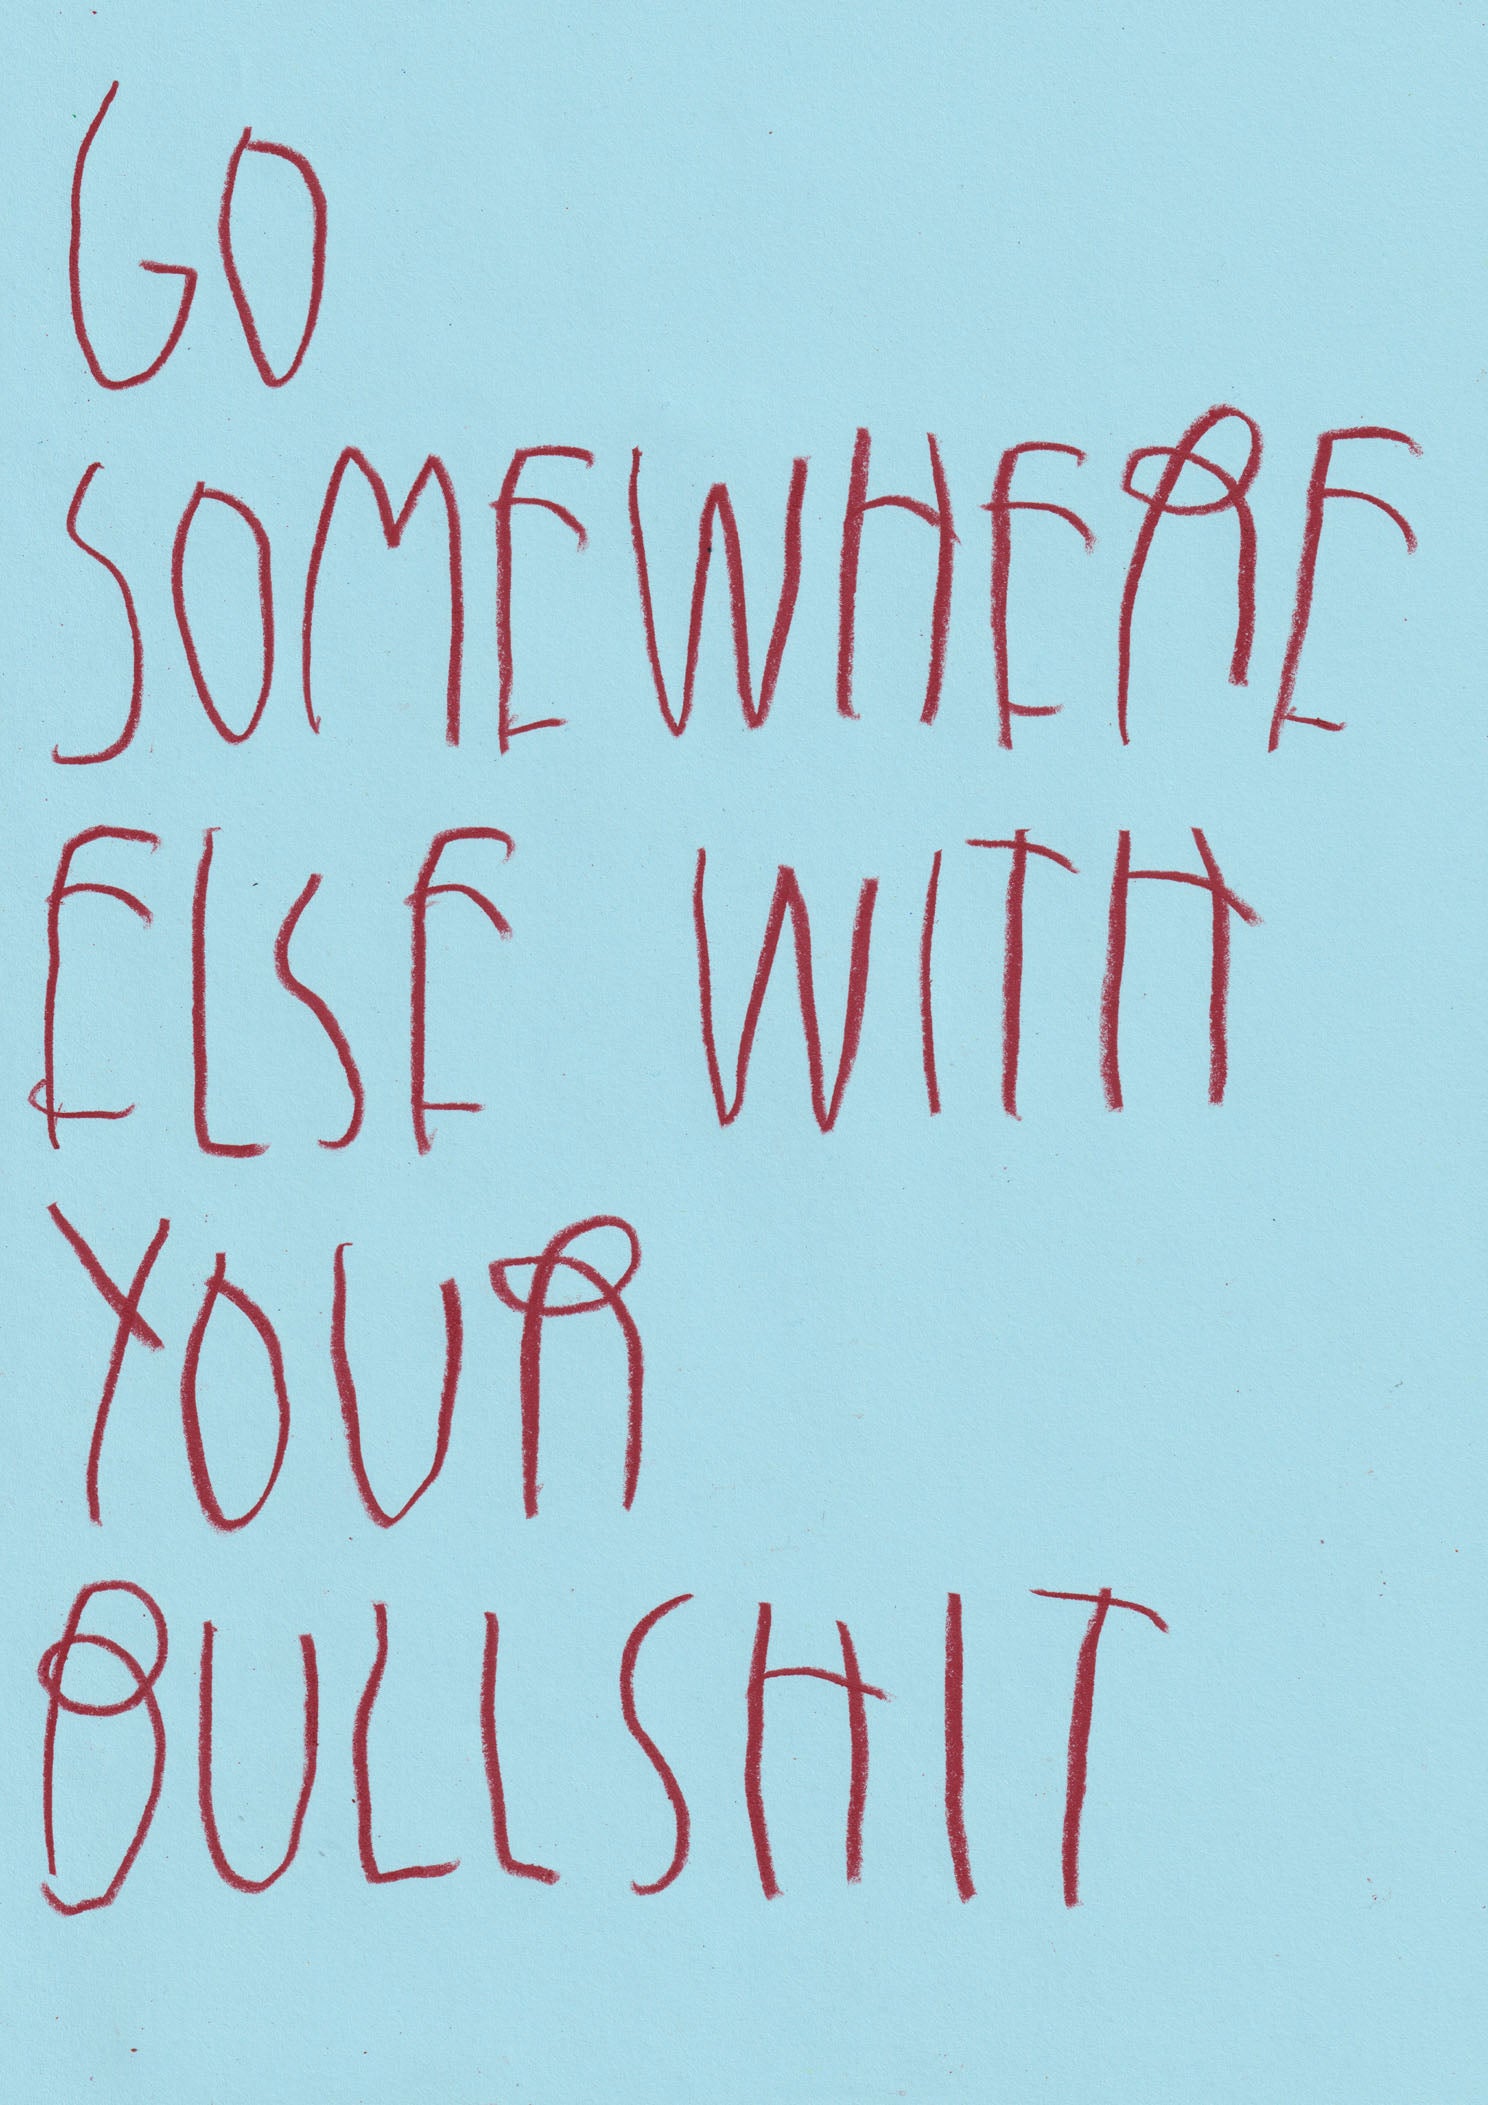 GO
SOMEWHERE
ELSE WITH
YOUR
BULLSHIT